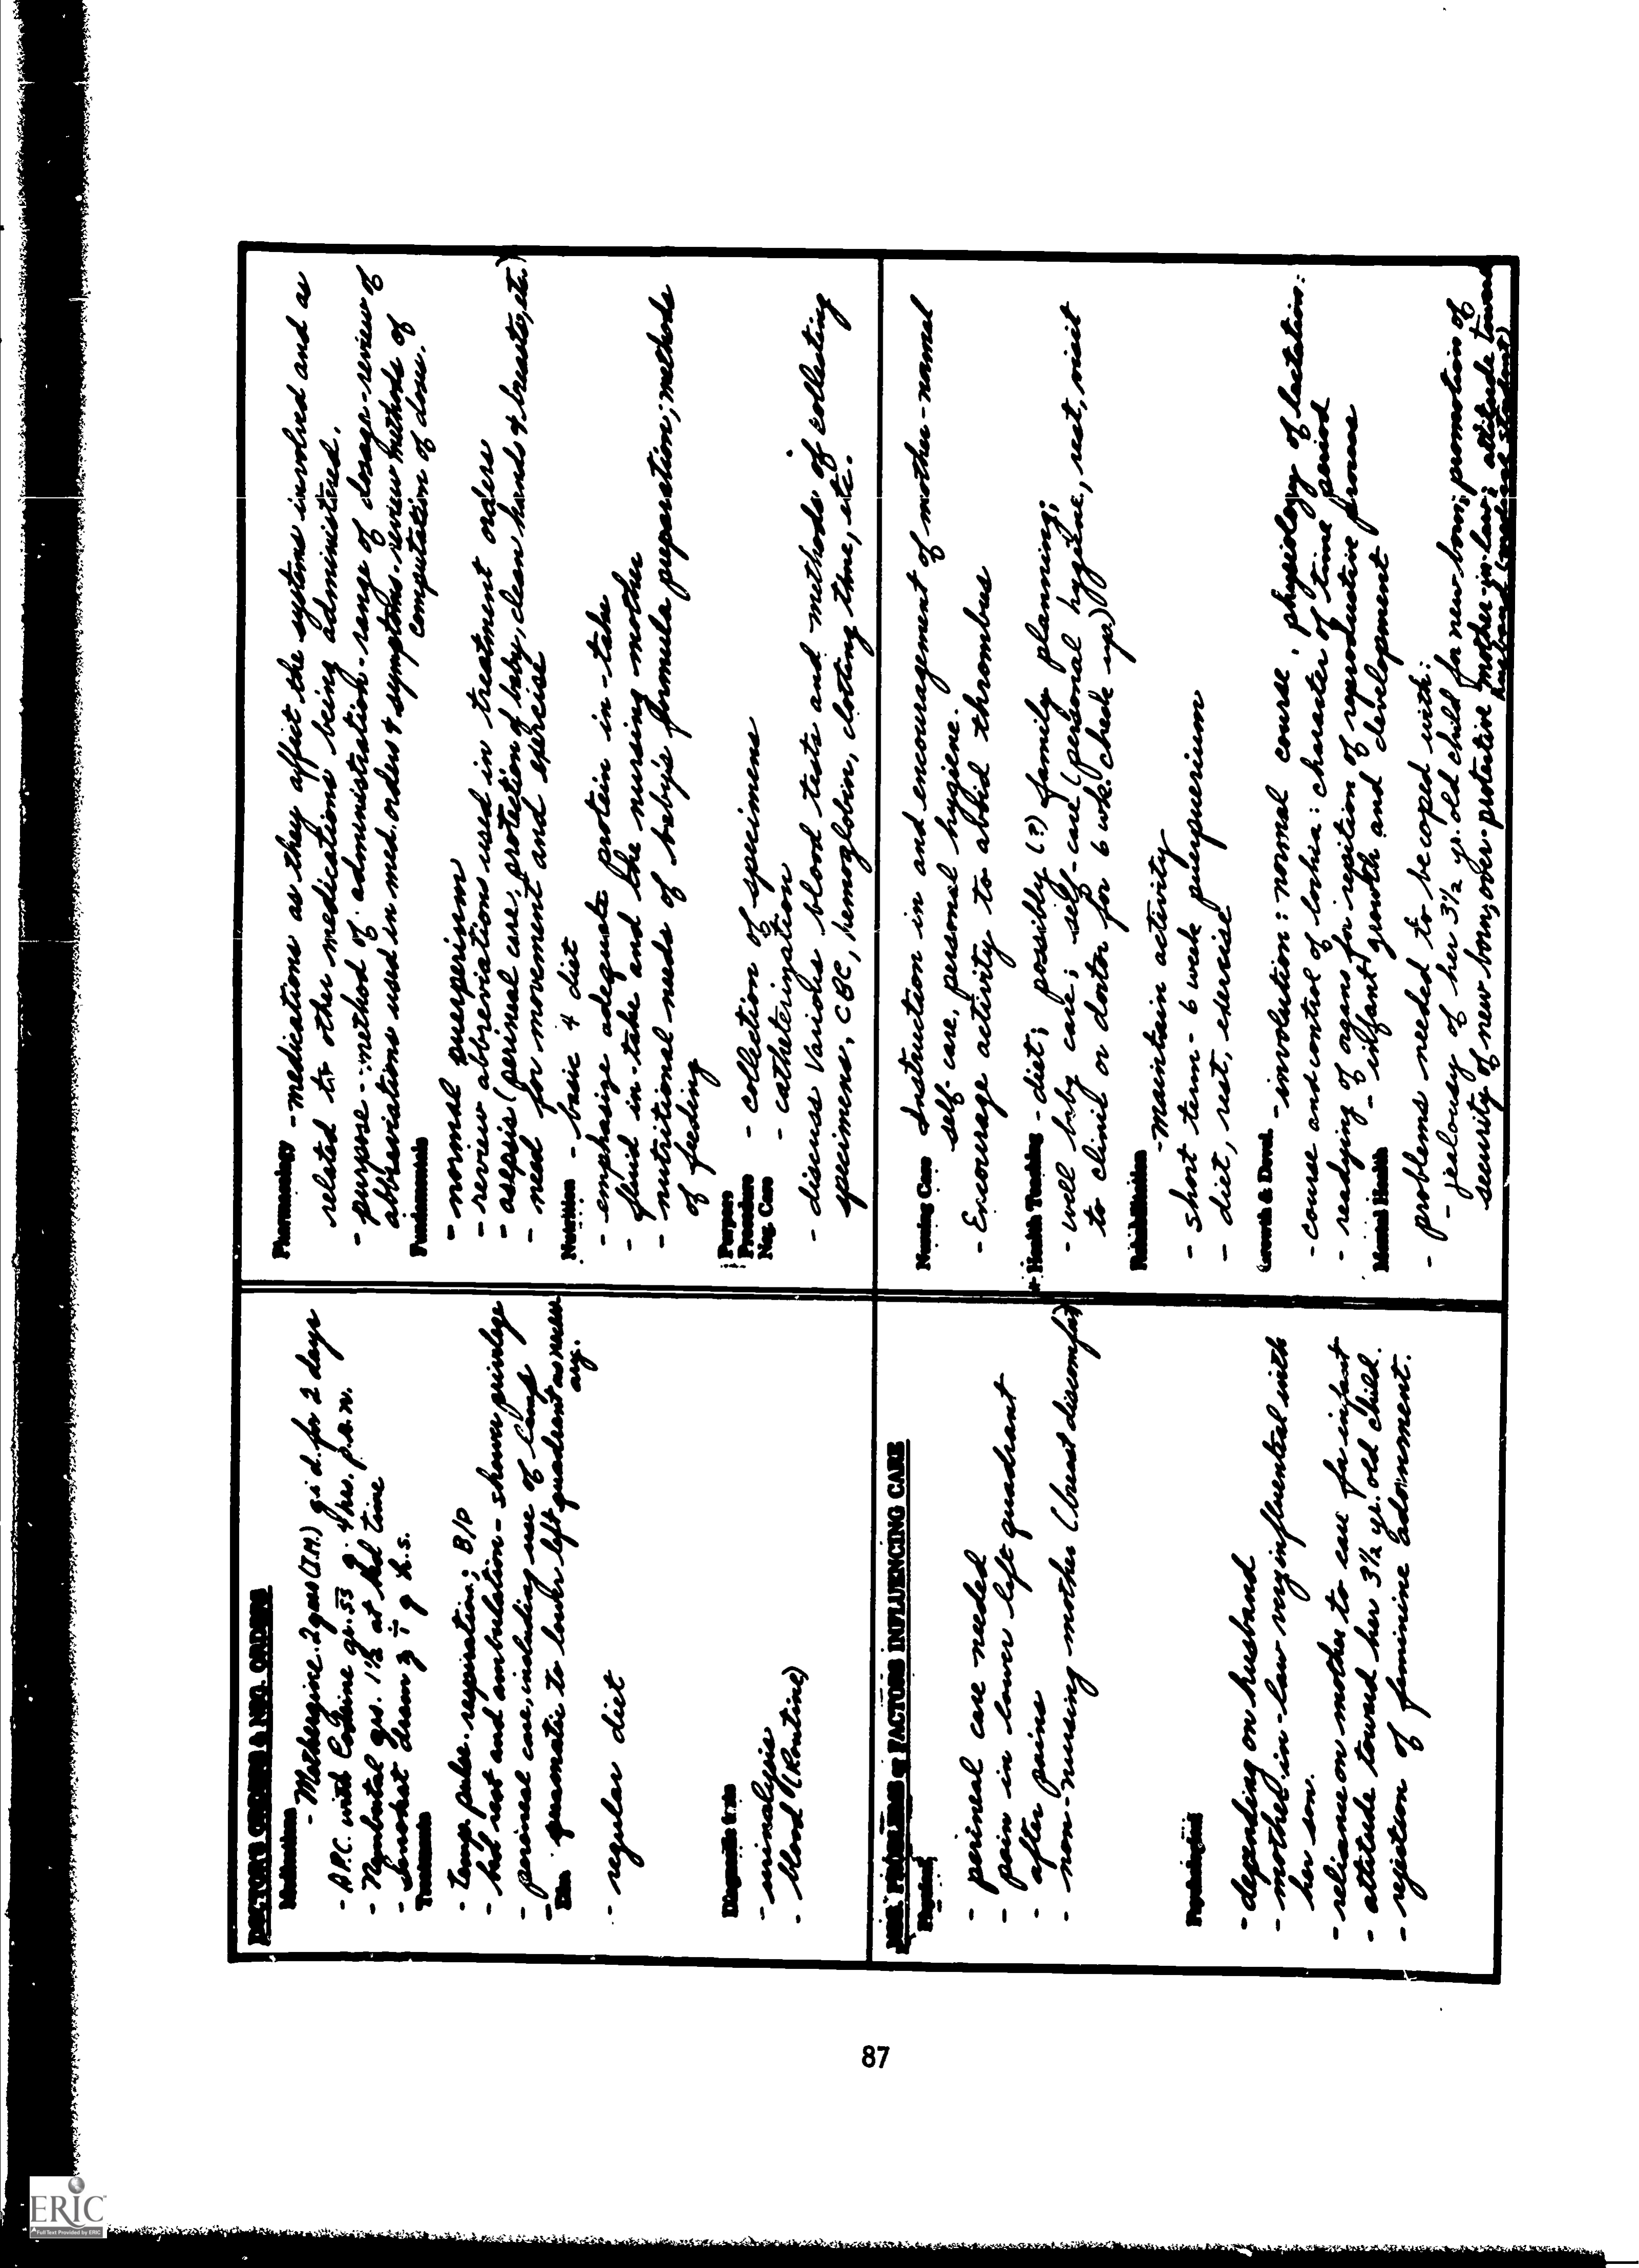 DOCTOR'S ORDERS & NSG. ORDERS
Medications
- Methergine 2 (I.M.) q.i.d. for 2 days
- A.P.C. with Codine gr. s̄s̄ q. 4 hrs. p.r.n.
- Nembutal grs. 1½ at bed time
- Senokot dram ʒ i q h.s.
Treatments
- temp. pulse. respiration; B/P
- bed rest and ambulation - shower privilege
- perineal care, including use of lamp
- to lower left quadrant as necess-
ary.
Diet
- regular diet
Diagnostic tests
- urinalysis
- blood (Routine)
Pharmacology - medications as they affect the systems involved and as
related to other medications being administered.
- purpose - method of administration - range of dosage - review of
abbreviations used in med. orders & symptoms. review methods of
computation of dose.
Fundamentals
- normal puerperium
- review abbreviations used in treatment orders
- asepsis (perineal care, protection of baby, clean hands & breasts, etc.)
- need for movement and exercise
Nutrition - basic 4 diet
- emphasize adequate protein in-take
- fluid in-take and the nursing mother
- nutritional needs of baby's formula preparation; methods
of feeding
Purpose
Procedure - collection of specimens
Nsg. Care - catheterization
- discuss various blood tests and methods of collecting
specimens, CBC, hemoglobin, clotting time, etc.
NSG. PROBLEMS or FACTORS INFLUENCING CARE
Physical
- perineal care needed
- pain in lower left quadrant
- after pains
- non-nursing mother (breast discomfort)
Psychological
- depending on husband
- mother-in-law very influential with
her son.
- reliance on mother to care for infant
- attitude toward her 3½ yr. old child.
- rejection of feminine adornment.
Nursing Care Instruction in and encouragement of mother - normal
self-care, personal hygiene.
- Encourage activity to avoid thrombus
* Health Teaching - diet; possibly (?) family planning;
- well baby care; self-care (personal hygiene, rest, visit
to clinic or doctor for 6 wk. check up.)
Rehabilitation
- maintain activity
- short term - 6 week puerperium
- diet, rest, exercise
Growth & Devel. - involution: normal course, physiology of lactation:
- course and control of lochia: character of time period
- readying of organs for repition of reproductive process
- infant growth and development
Mental Health
- problems needed to be coped with:
- jealousy of her 3½ yr. old child for new born; promotion of
security of new born; over-protective mother-in-law; attitude toward
husband (medical student)
87
ERIC
Full Text Provided by ERIC